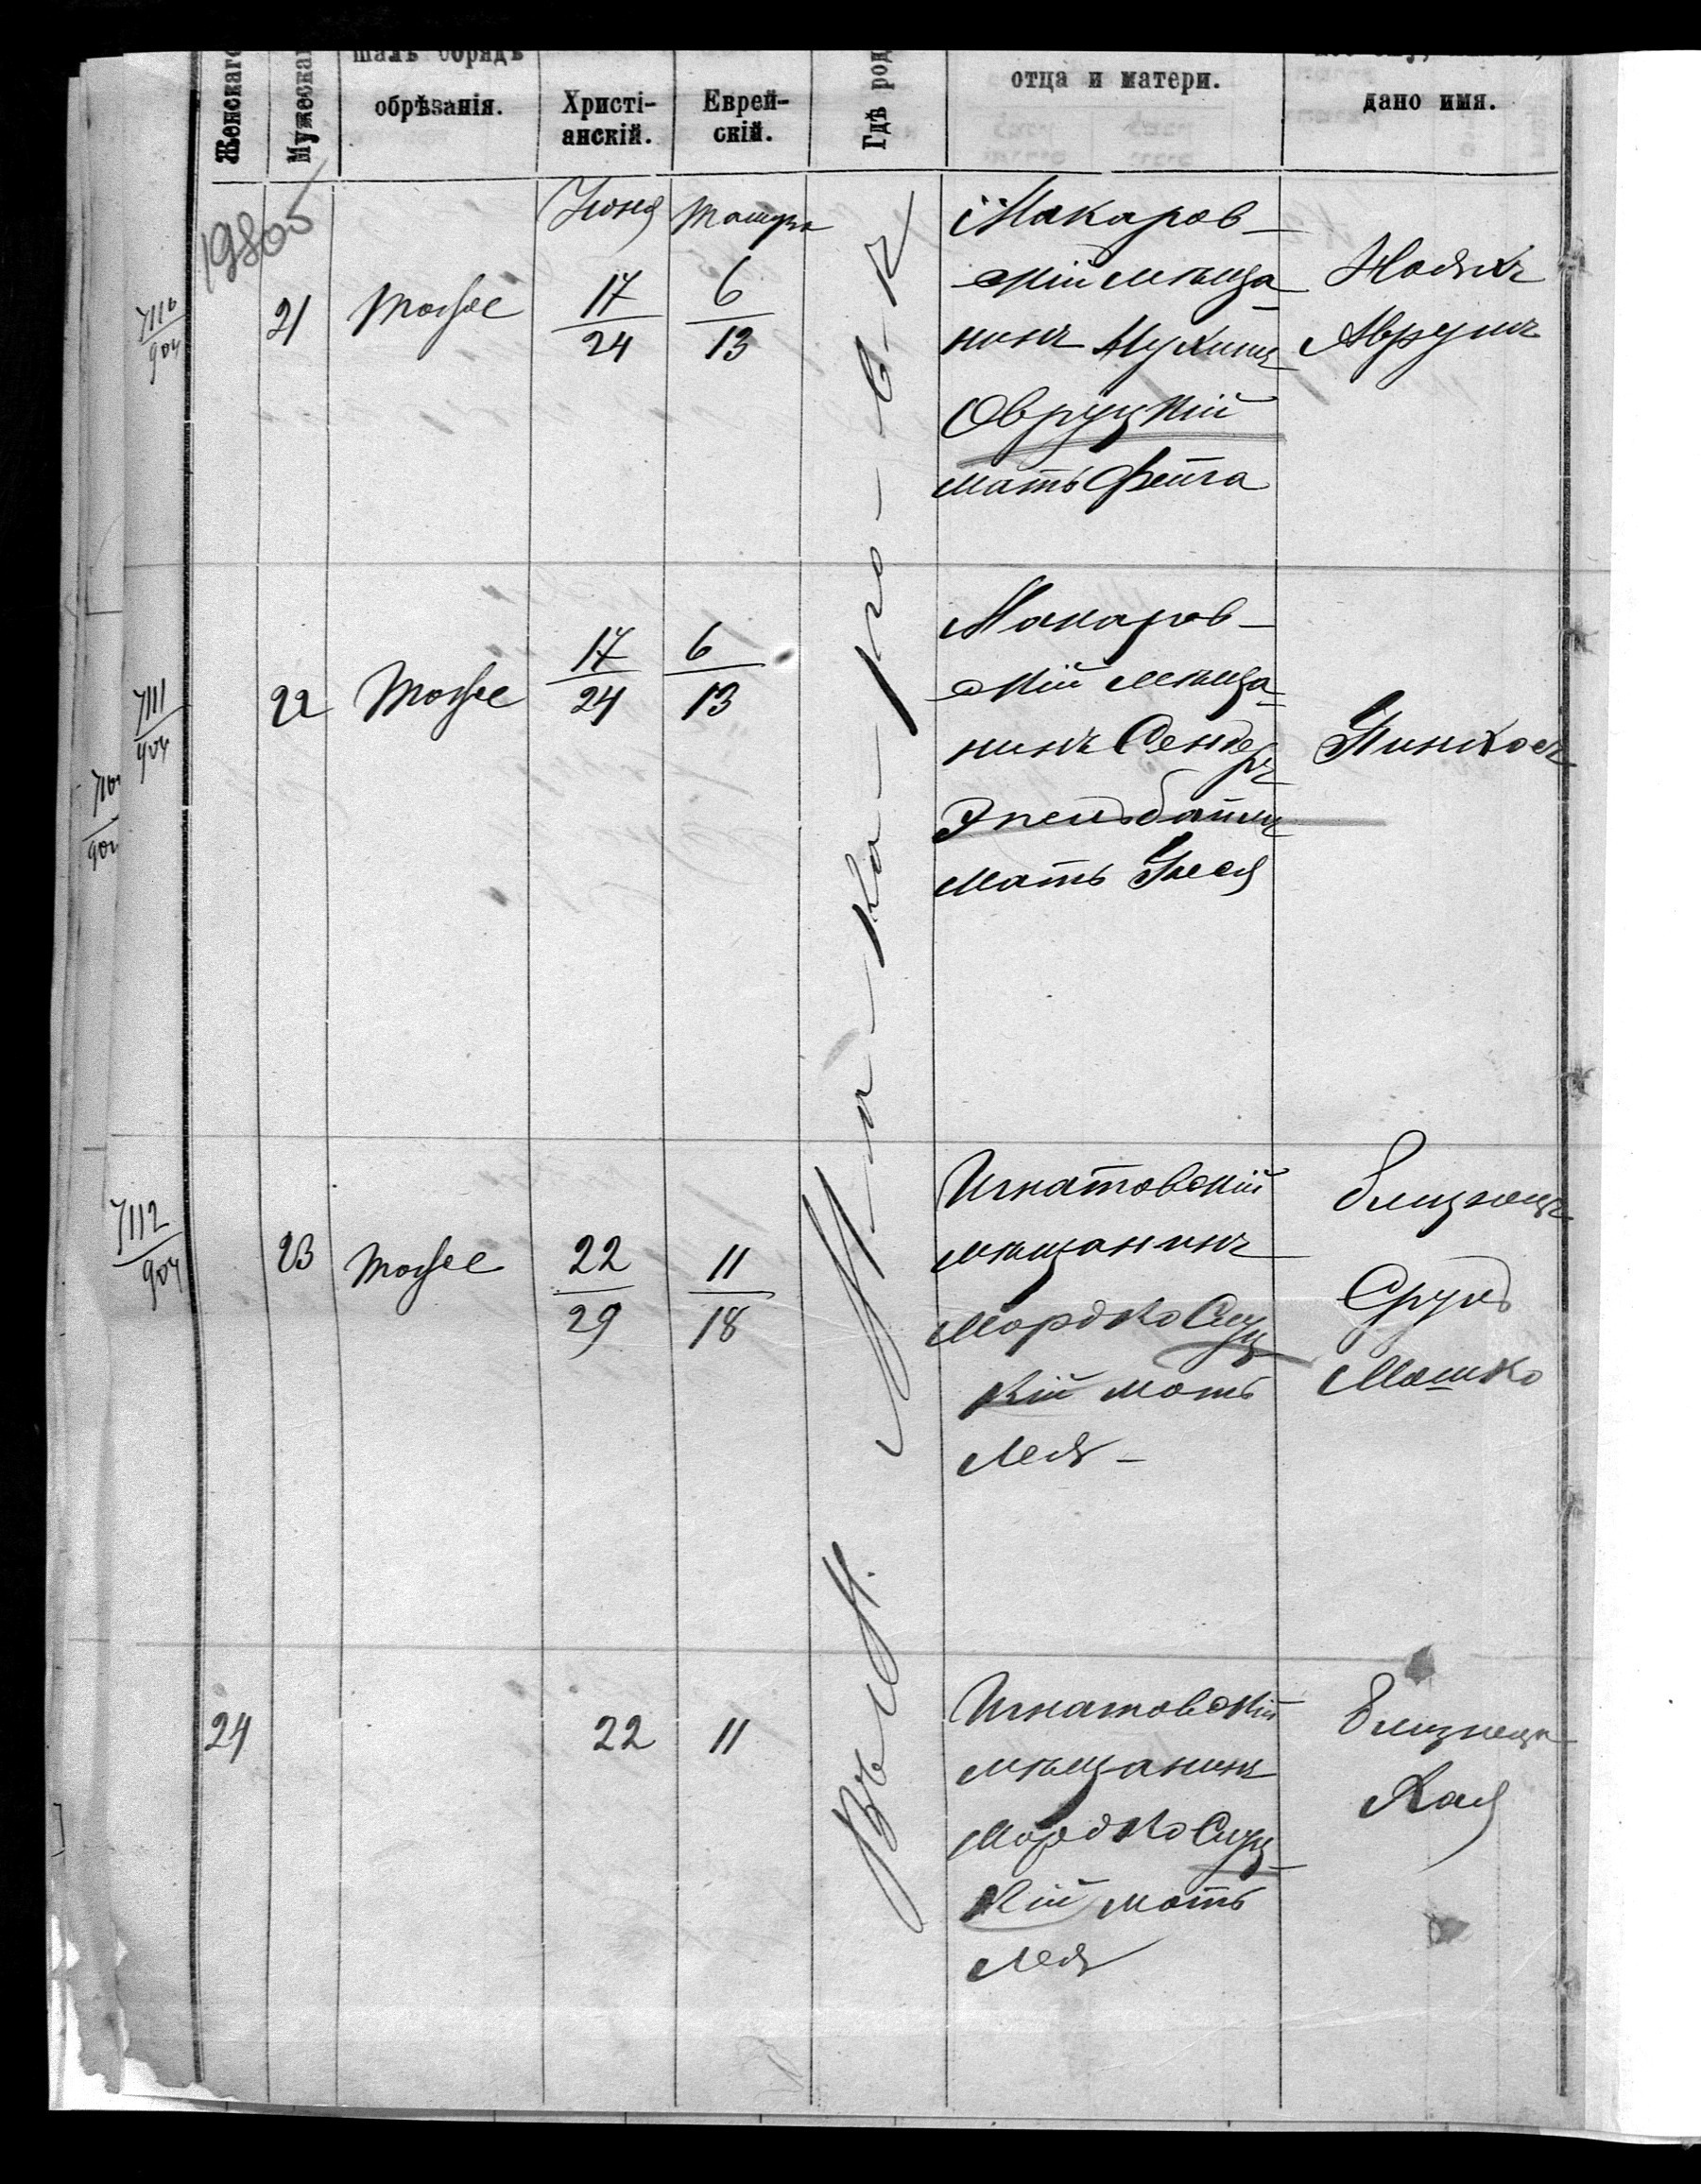 Женскаго
Мужескаг
шалъ обрядъ
обрѣзанія.
Христі-
анскій.
Еврей-
скій.
Гдѣ род
отца и матери.
дано имя.
19805
Іюня
7110
904
21
тоже
17
24
6
13
Макаров-
скій мѣща-
нинъ Нухимъ
Овруцкій
мать Фейга
Авруmъ
7111
904
22
тоже
17
24
6
13
Макаров-
скій мѣща-
нинъ Сендеръ
мать Песя
Пинхосъ
7112
904
23
тоже
22
29
11
18
Игнатовскій
мѣщанинъ
Мордко Слуц-
кій мать
Лея -
близнецъ
Сруль
Мошко
24
22
11
Игнатовскій
мѣщанинъ
Мордко Слуц-
кій мать
Лея
близнецъ
Хая
Въ м. М-а-ка-ро-в-ѣ